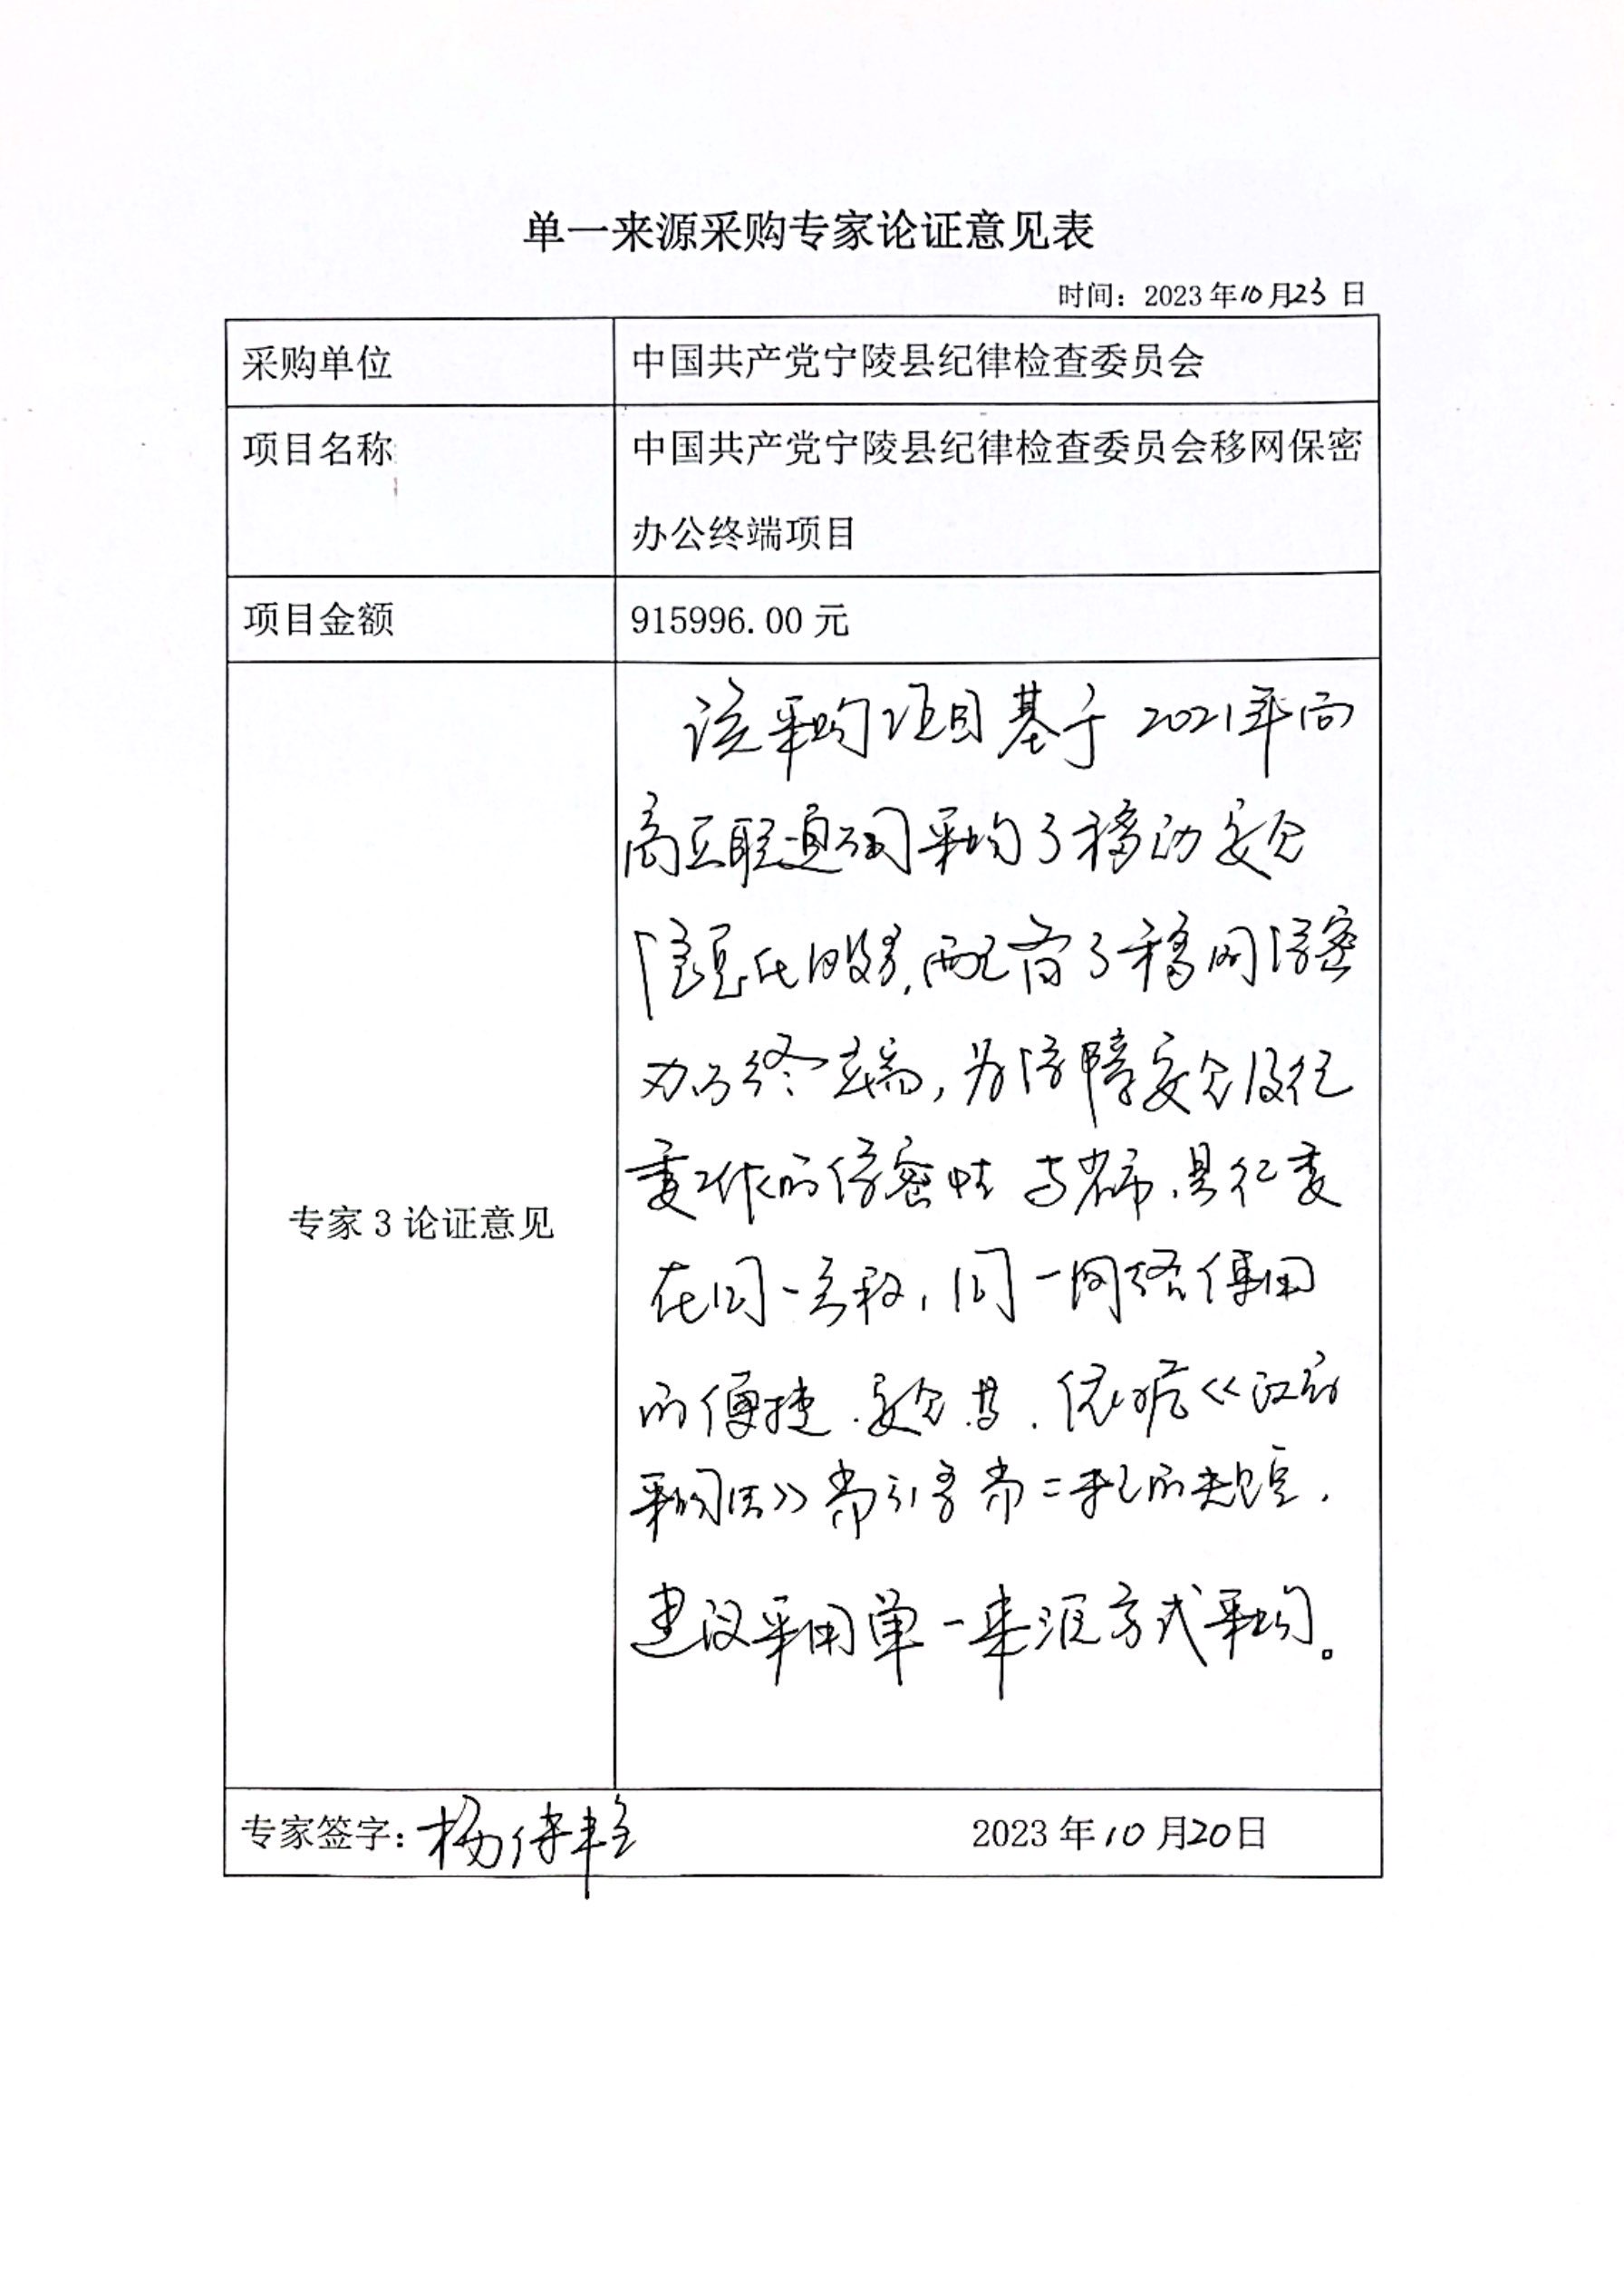 单一来源采购专家论证意见表
时间：2023年10月23日
采购单位
中国共产党宁陵县纪律检查委员会
项目名称
中国共产党宁陵县纪律检查委员会移网保密
办公终端项目
项目金额
915996.00元
专家3论证意见
该采购项目基于2021年向
商丘联通公司采购了移动安全
信息化服务，配备了移网保密
办公终端，为保障安全及纪
委工作的保密性与省市、县纪委
在同一系统，同一网络使用
的便捷、安全等，依据《政府
采购法》第31条第二款的规定，
建议采用单一来源方式采购。
专家签字：杨
2023年10月20日